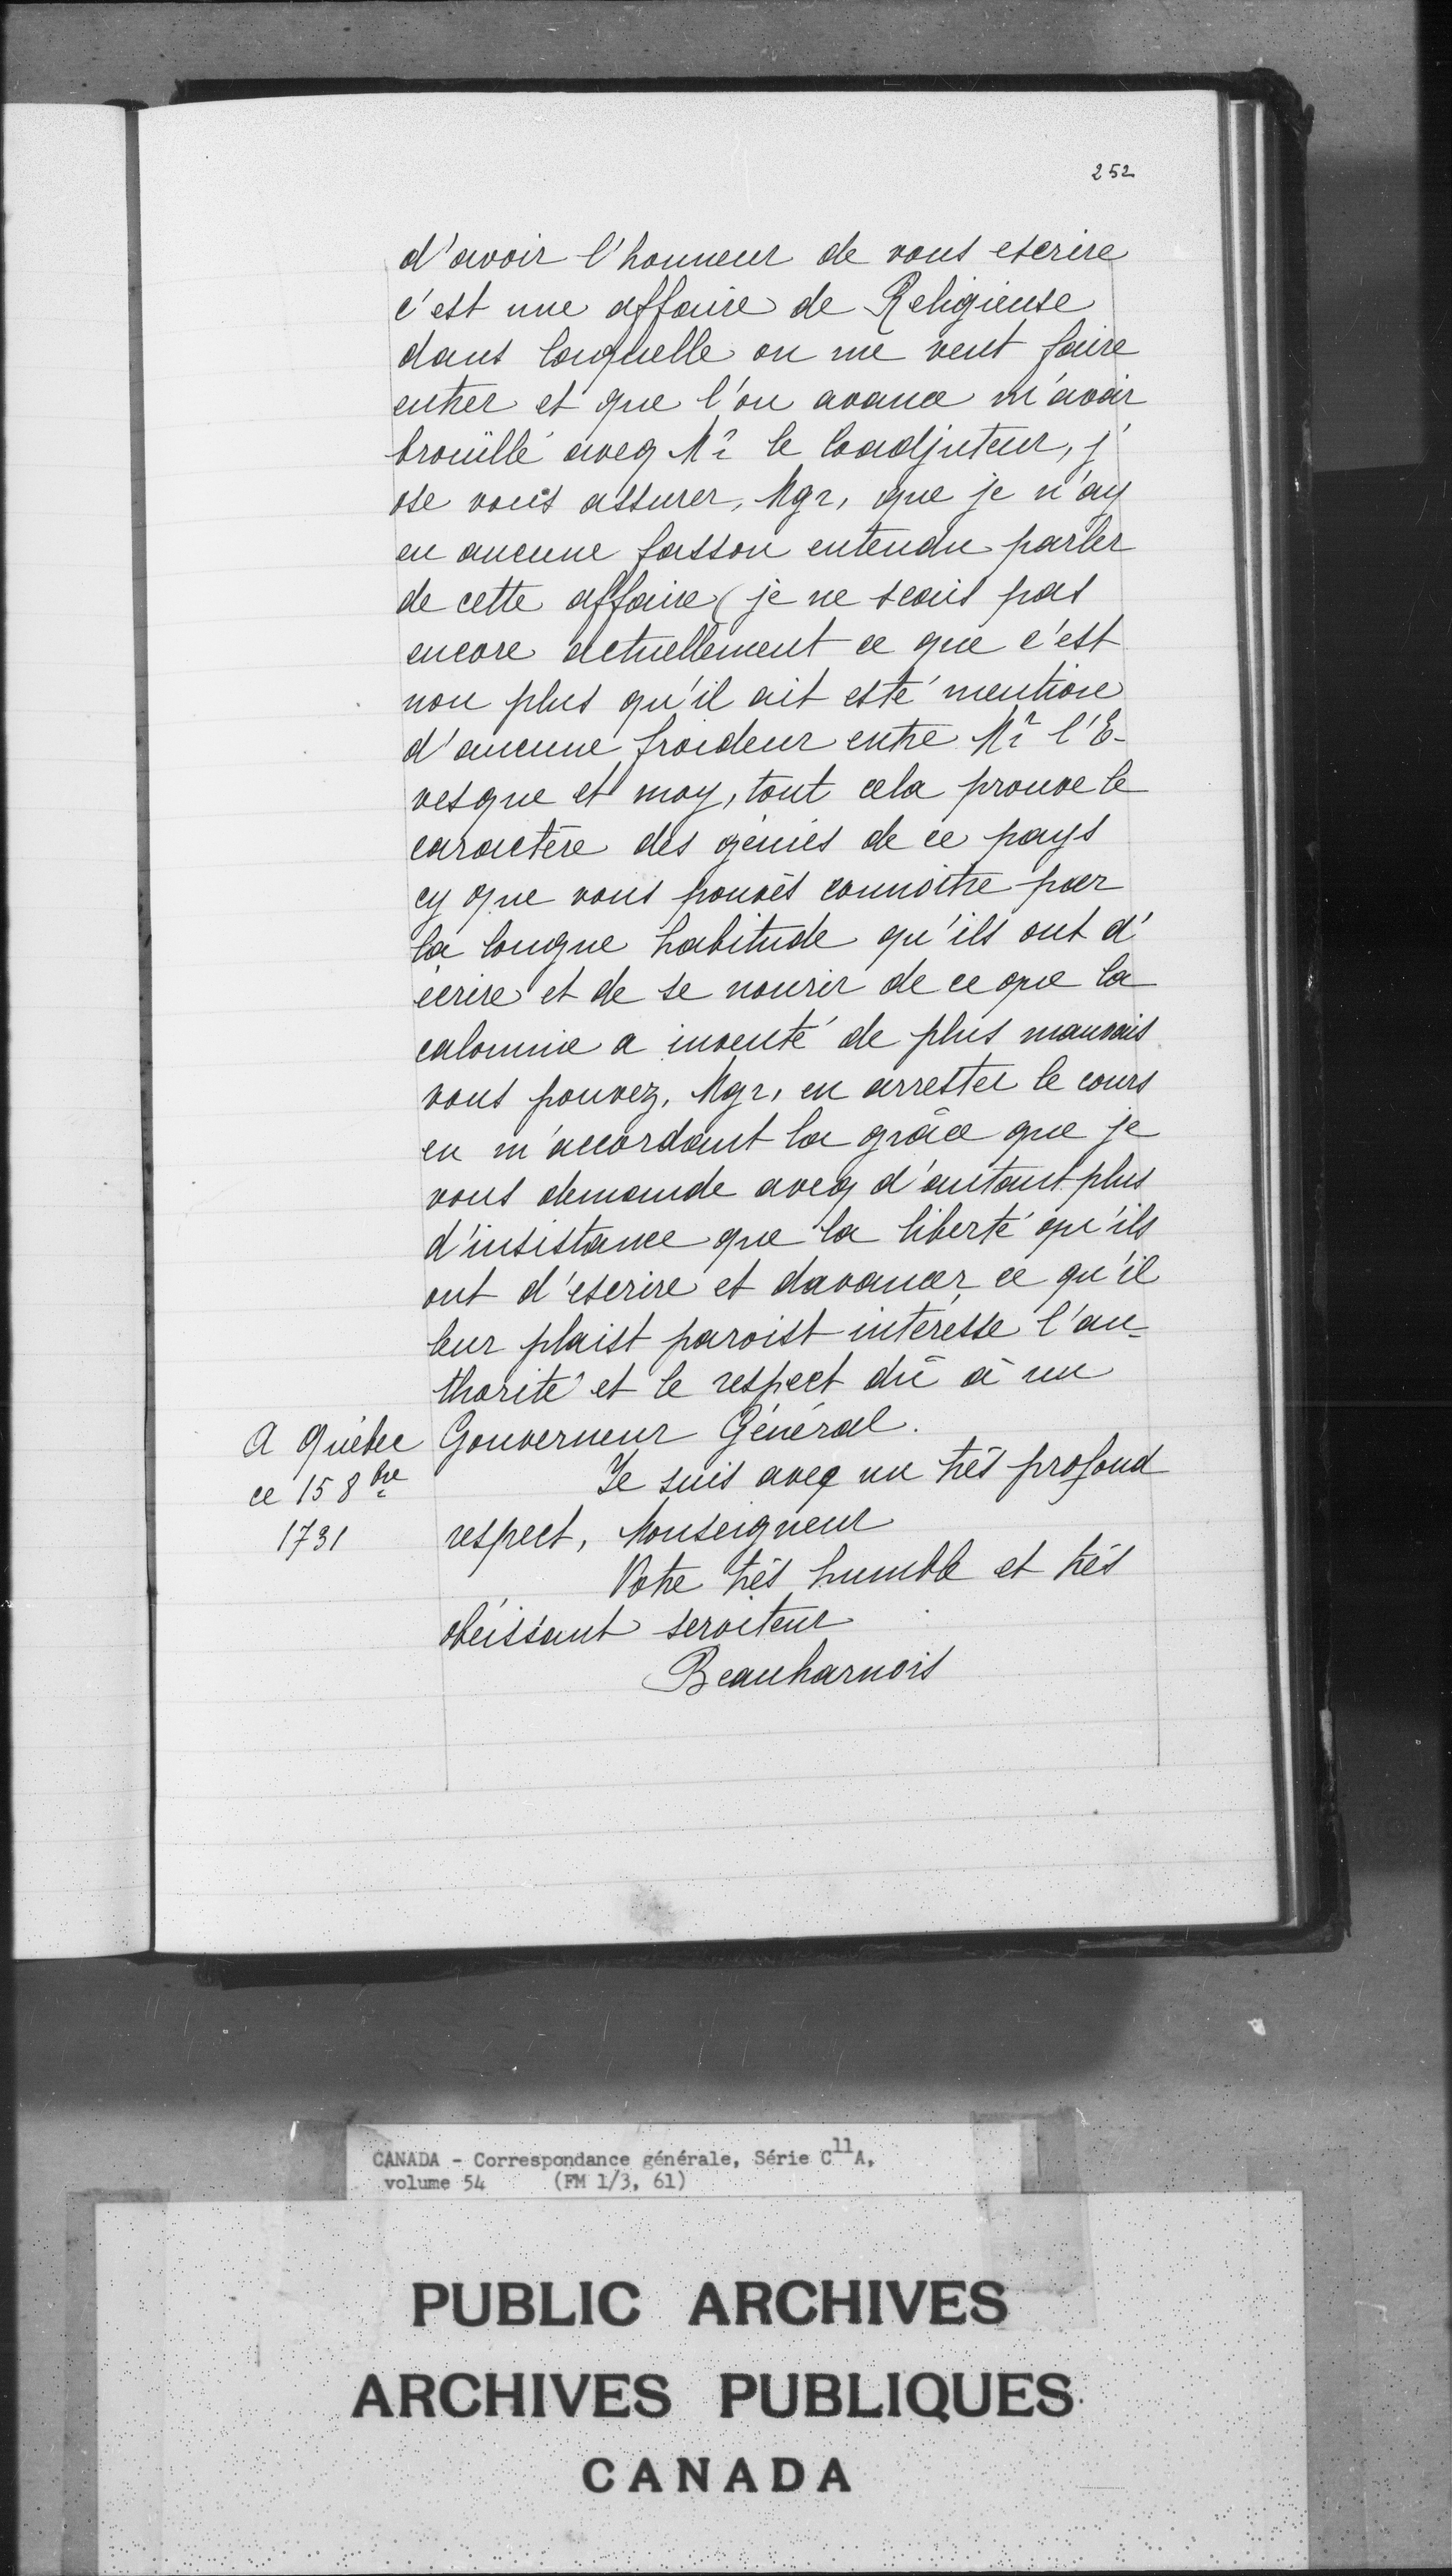 252
d'avoir l'honneur de vous escrire
c'est une affaire de Religieuse
dans laquelle on me veut faire
entrer et que l'on avance m'avoir
brouïllé aveq Mr le Coadjuteur, j'
ose vous assurer, Mgr, que je n'ay
en aucune fasson entendu parler
de cette affaire (je ne scais pas
encore actuellement ce que c'est
non plus qu'il ait esté mention
d'aucune froideur entre Mr l'E-
vesque et moy, tout cela prouve le
caractère des génies de ce pays
cy que vous pouvés connoitre par
la longue habitude qu'ils ont d'
écrire et de se nourir de ce que la
calomnie a inventé de plus mauvais
vous pouvez, Mgr, en arrester le cours
en m'accordant la grâce que je
vous demande aveq d'autant plus
d'insistance que la liberté qu'ils
ont d'escrire et davancer ce qu'il
leur plaist paroist intéresse l'au-
thorité et le respect dû à un
Gouverneur Général.
A Québec
ce 15 8bre
1731
Je suis aveq un très profond
respect, Monseigneur
Votre très humble et très
obéissant serviteur
Beauharnois
CANADA - Correspondance générale, Série C11A,
volume 54 (FM 1/3, 61)
PUBLIC ARCHIVES
ARCHIVES PUBLIQUES
CANADA